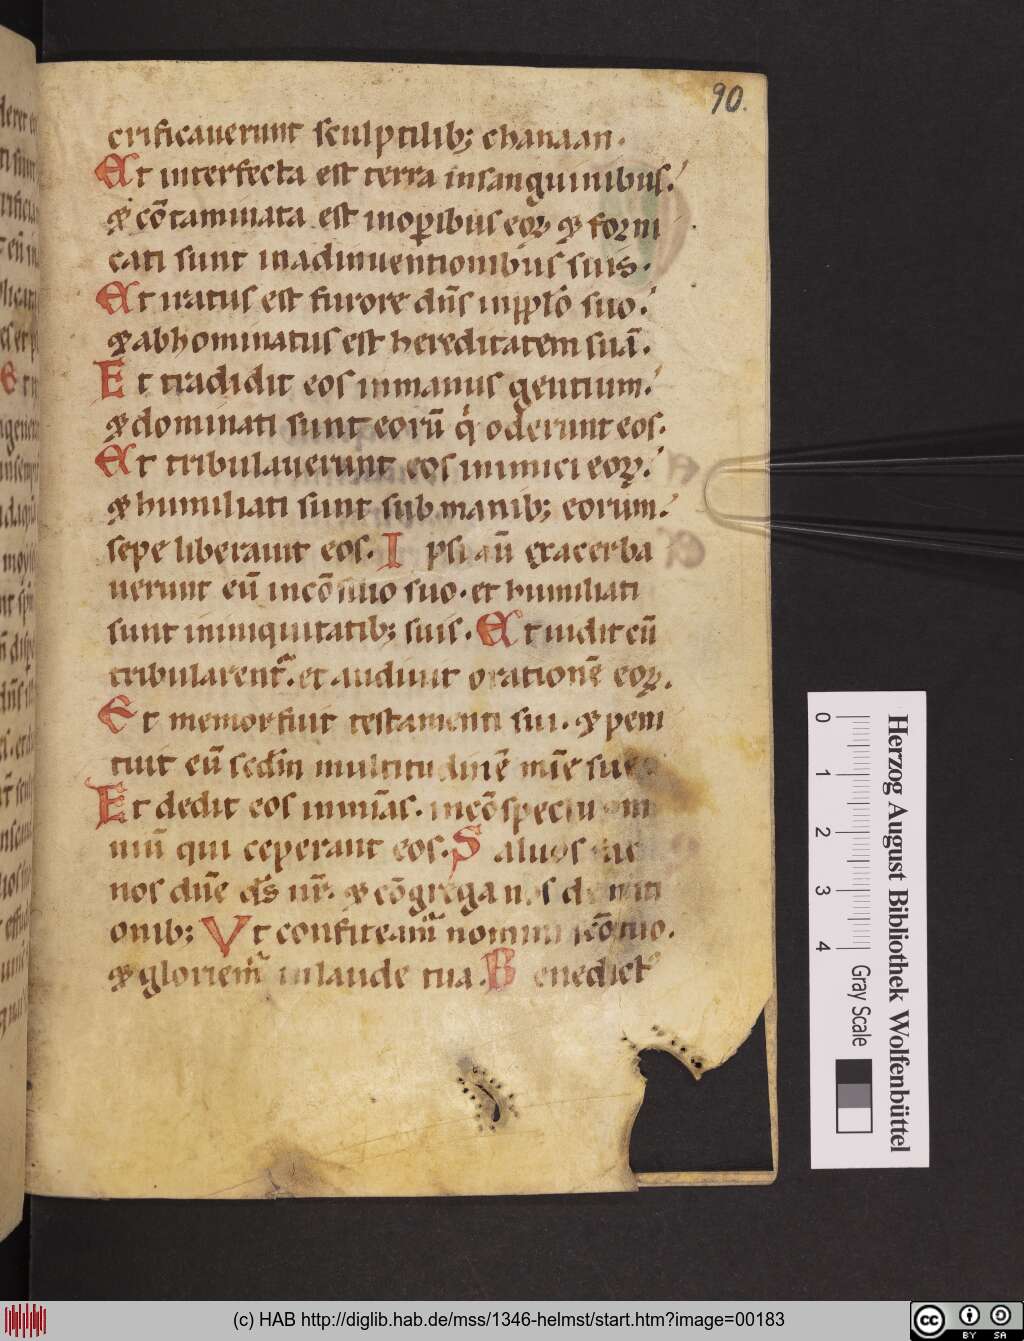 90.
crificauerunt sculptilib; chanaan.
Et interfecta est terra insanguinibus.
& cōtaminata est inoꝑibus eoꝝ & forni
cati sunt inadinuentionibus suis.
Et iratus est furore dn̄s inpplō suo.
& abhominatus est hereditatem suā.
Et tradidit eos inmanus gentium.
& dominati sunt eorū q̇ oderunt eos.
Et tribulauerunt eos inimici eoꝝ.
& humiliati sunt sub manib; eorum.
sepe liberauit eos. Ipsi aū exacerba
uerunt eū incōsilio suo. et humiliati
sunt ininiquitatib; suis. Et uidit cū
tribularent᷑. et audiuit orationē eoꝝ.
Et memor fuit testamenti sui. & peni
tuit eū sedm̄ multitudinē mīe sue
Et dedit eos inmīas. incōspectu om
niū qui ceperant eos. Saluos fac
nos dn̄e ds̄ nr̄. & cōgrega nos de nati
onib; Vt confiteam̄ nomini scō tuo.
& gloriem᷑ inlaude tua. Benedict᷒
Herzog August Bibliothek Wolfenbüttel
0 1 2 3 4
Gray Scale
(c) HAB http://diglib.hab.de/mss/1346-helmst/start.htm?image=00183
cc BY SA